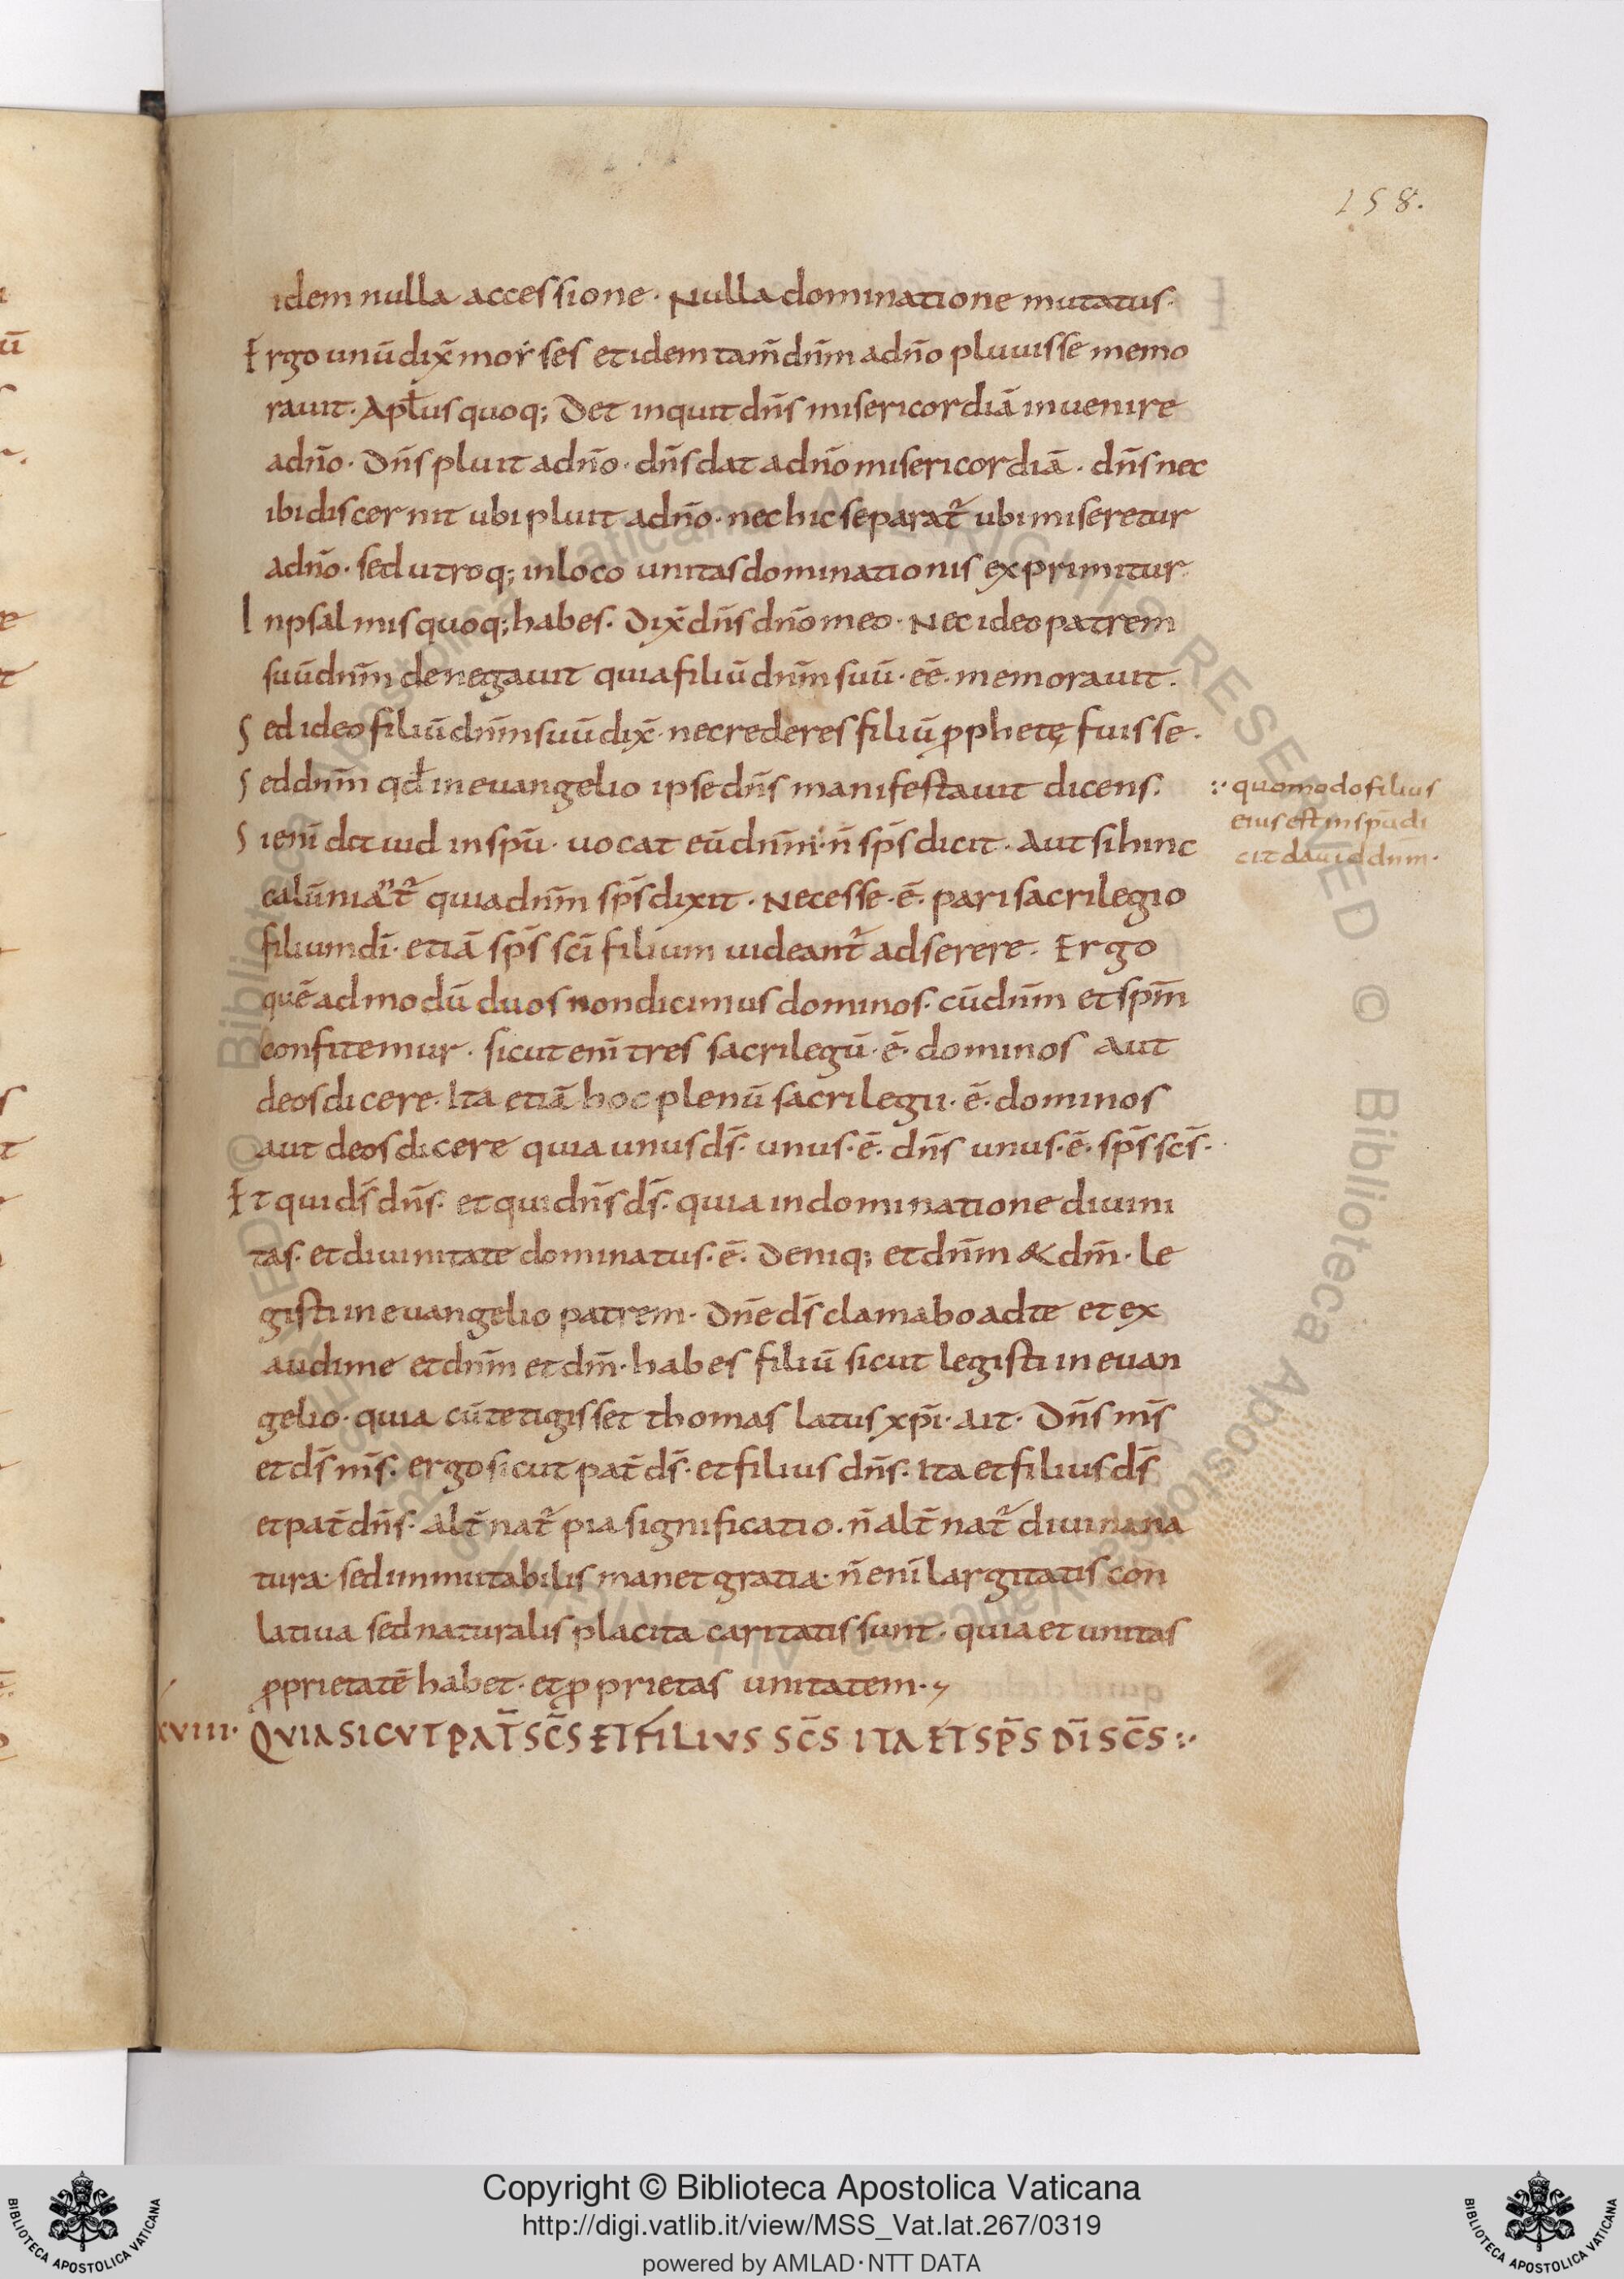 158.
idem nulla accessione. Nulla dominatione mutatus.
Ergo unū dix̄ morses et idem tam̄ dn̄m a dn̄o pluuisse memo
rauit. Apl̄us quoq; Det inquit dn̄s misericordiā inuenire
a dn̄o. Dn̄s pluit a dn̄o. dn̄s dat a dn̄o misericordiā. dn̄s nec
ibi discernit ubi pluit a dn̄o. nec hic separat᷒ ubi miseretur
a dn̄o. sed utroq; in loco unitas dominationis exprimitur
In psalmis quoq; habes. Dix̄ dn̄s dn̄o meo. Nec ideo patrem
suū dn̄m denegauit quia filiū dn̄m suū. eē. memorauit.
Sed ideo filiū dn̄m suū dix̄. ne crederes filiū ꝓphetę fuisse.
Sed dn̄m qđ in euangelio ipse dn̄s manifestauit dicens.
Si enī dd in spū. uocat eū dn̄m ⁖ n̄ sp̄s dicit. Aut si hinc
⁖ quomodo filius
eius est in spu di
cit dauid dnm.
calūniat᷒ quia dn̄m sp̄s dixit. Necesse. ē. pari sacrilegio
filium dī. etiā sp̄s scī filium uideant᷒ adserere. Ergo
quēadmodū duos non dicimus dominos. cū dn̄m et spm̄
confitemur. sicut enī tres sacrilegū. ē. dominos aut
deos dicere. Ita etiā hoc plenū sacrilegii. ē. dominos
aut deos dicere quia unus ds̄. unus. ē. dn̄s unus. ē. sp̄s sc̄s.
Et qui ds̄ dn̄s. et qui dn̄s ds̄. quia in dominatione diuini
tas. et diuinitate dominatus. ē. Deniq; et dn̄m & dm̄. le
gisti in euangelio patrem. Dn̄e ds̄ clamabo ad te et ex
audi me et dn̄m et dm̄. habes filiū sicut legisti in euan
gelio. quia cū tetigisset thomas latus xp̄i. ait. Dn̄s ms̄
et ds̄ ms̄. ergo sicut pat̄ ds̄. et filius dn̄s. Ita et filius ds̄
et pat̄ dn̄s. Alt̄nat᷒ pia significatio. n̄ alt̄nat᷒ diuina na
tura. sed inmutabilis manet gratia. n̄ enī largitatis con
latiua sed naturalis placita caritatis sunt. quia et unitas
ꝓprietatē habet. et ꝓprietas unitatem.
XVIII. QVIA SICVT PAT̄ SC̄S ET FILIVS SC̄S ITA ET SP̄S DĪ SC̄S ⁖
Copyright © Biblioteca Apostolica Vaticana
http://digi.vatlib.it/view/MSS_Vat.lat.267/0319
powered by AMLAD · NTT DATA
BIBLIOTECA APOSTOLICA VATICANA
BIBLIOTECA APOSTOLICA VATICANA